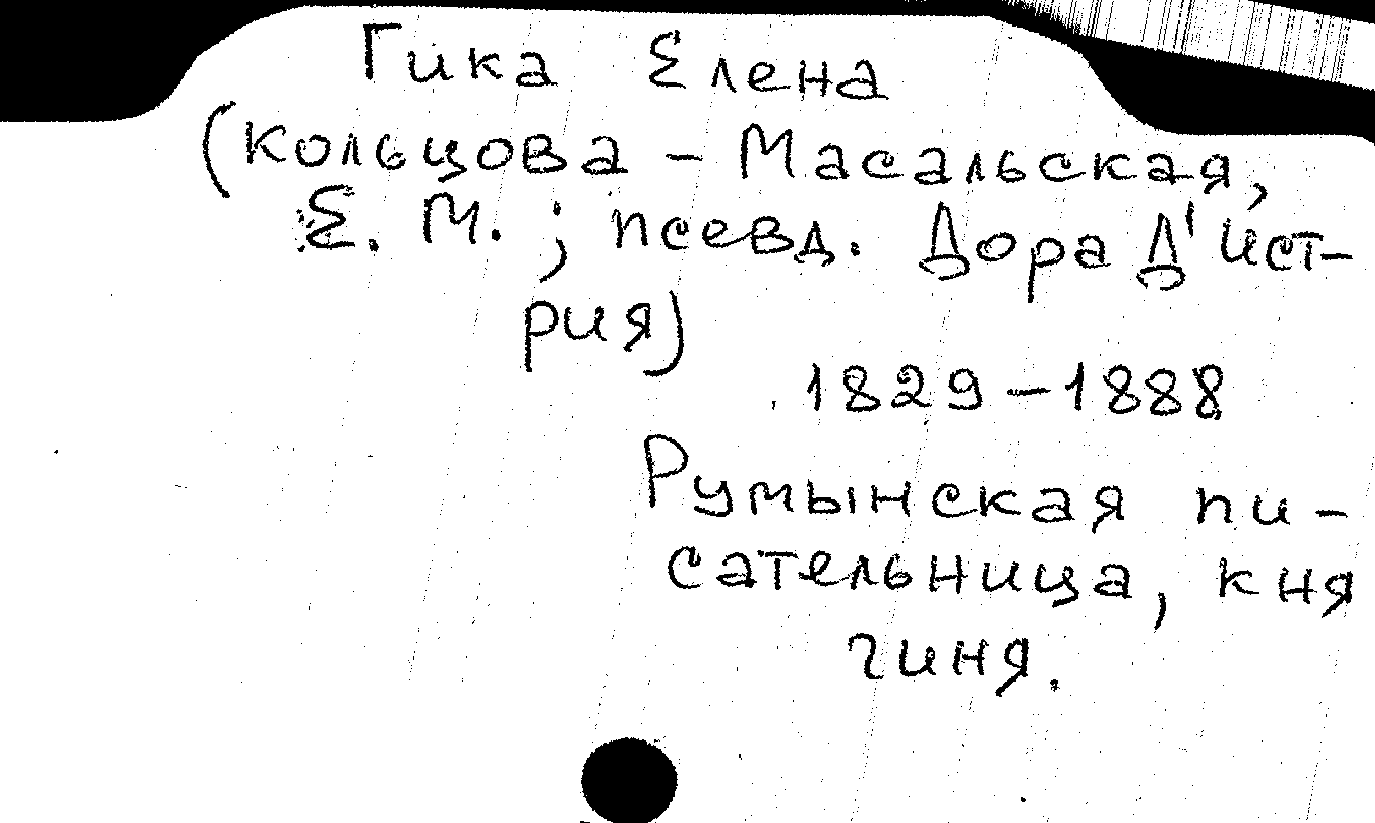 Гика Елена
(Кольцова - Масальская,
Е. М. ; псевд. Дора Д'Ист-
рия)
1829-1888
Румынская пи-
сательница, кня
гиня.